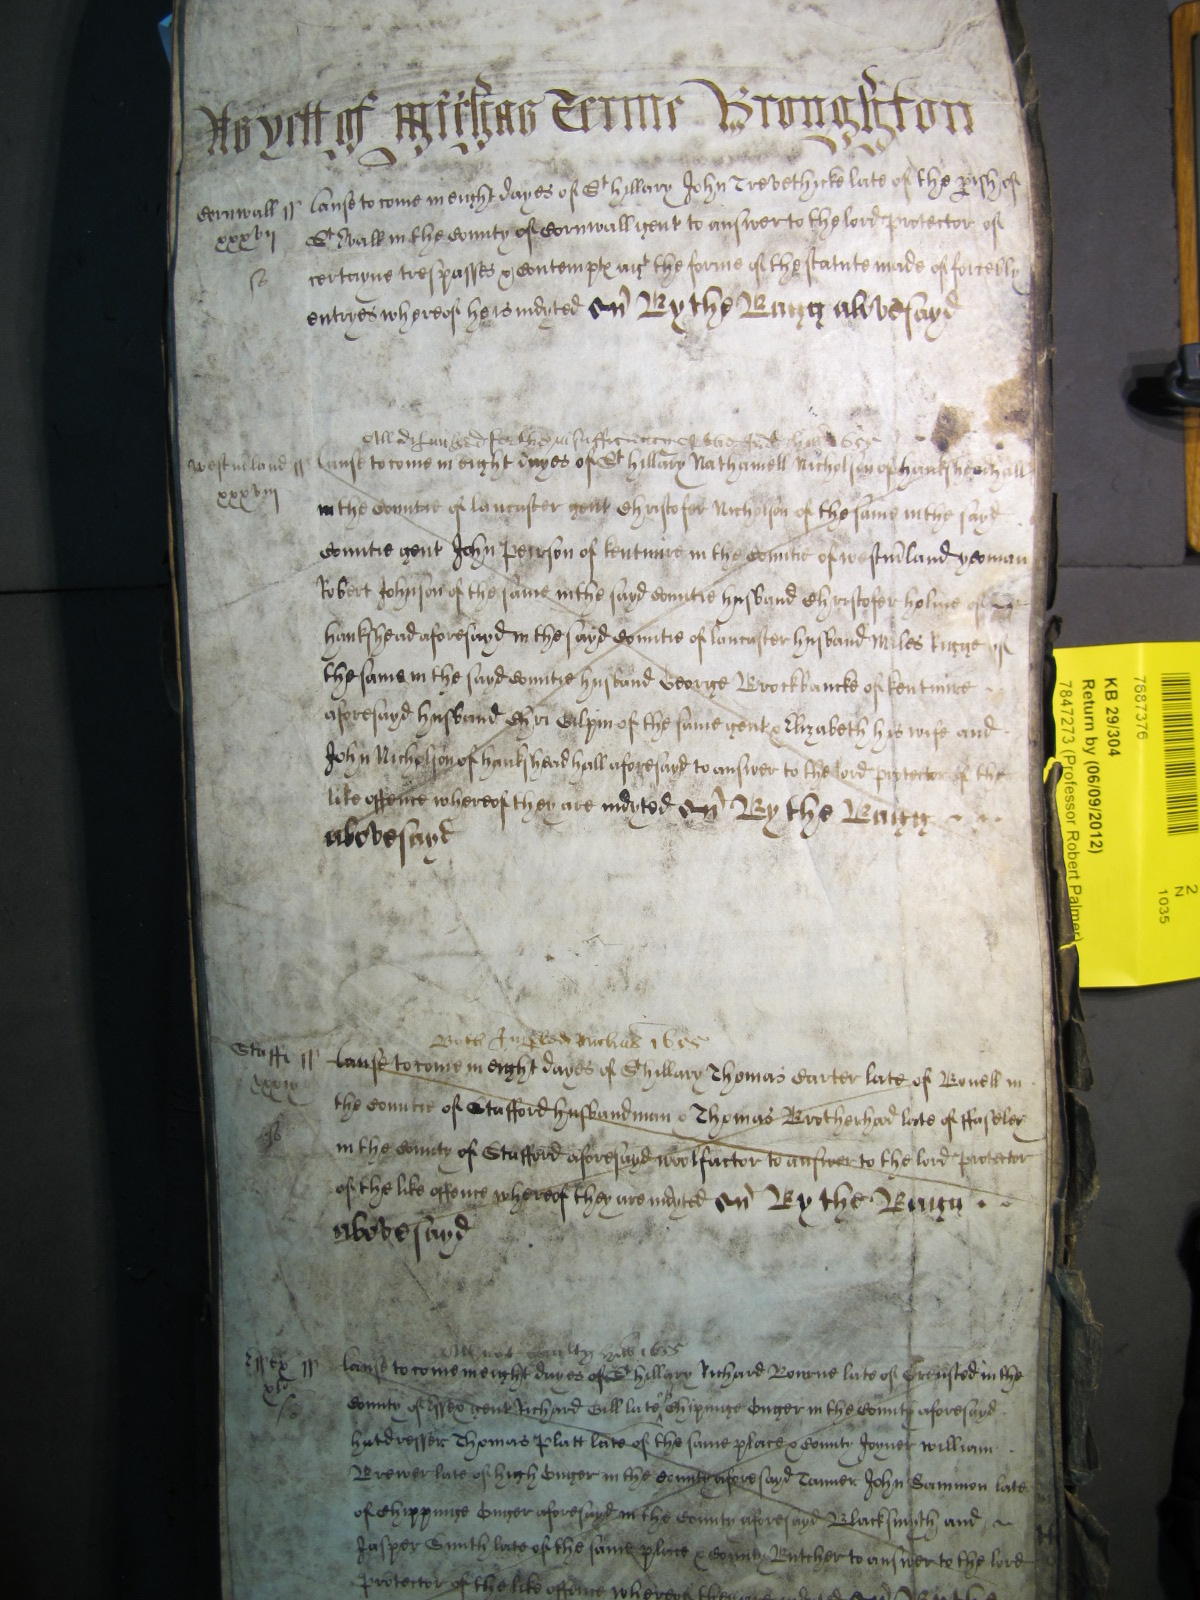 As yett of Mich̃as Terme Broughton
Cornwall ss Cause to come in eight dayes of St Hillary John Trevethicke late of the p̱ish of
xxxvij
St Wall in the County of Cornwall gent to answer to the lord protector of
certayne trespasses & contempts agt the forme of the statute made of forcebly
entryes whereof he is indyted By the Bagg abovesayd
All discharged for the insufficiency of the 1655
Westm̃land ss Cause to come in eight dayes of St Hillary Nathaniell Nicholson of hauksheadhall
xxxviij
in the Countie of Lancaster gent Christofer Nicholson of the same in the sayd
Countie gent John Peirson of kentmire in the Countie of westm̃land yeoman
Robert Johnson of the same in the sayd Countie husband Christofer holme of
haukshead aforesayd in the sayd Countie of Lancaster husband Miles Rigge of
the same in the sayd Countie husband George Brockbancke of kentmire
aforesayd husband Chri Gilpin of the same gent & Elizabeth his wife and
John Nicholson of haukshead hall aforesayd to answer to the lord protector of the
like offence whereof they are indyted By the Bagg
abovesayd
Both Michas 1655
Staff ss Cause to come in eight dayes of St hillary Thomas Carter late of in
xxxix
the Countie of Stafford husbandman & Thomas Brotherhood late of
in the County of Stafford aforesayd woolfactor to answer to the lord protector
of the like offence whereof they are indyted By the Bagg
abovesayd
All not guilty 1655
Essex ss Cause to come in eight dayes of St hillary Richard Bourne late of Greensted in the
xl
County of Essex gent Richard Gill late of Chipinge Onger in the County aforesayd
Thomas Platt late of the same place & County Joyner William
Brewer late of high Onger in the County aforesayd Tanner John Sammon late
of Chippinge Onger aforesayd in the County aforesayd Blacksmyth and
Jasper Smith late of the same place & County Butcher to answer to the lord
protector of the like offence whereof they are indyted By the
7687376
KB 29/304
Return by (06/09/2012)
7847273 (Professor Robert Palmer)
2
N
1035